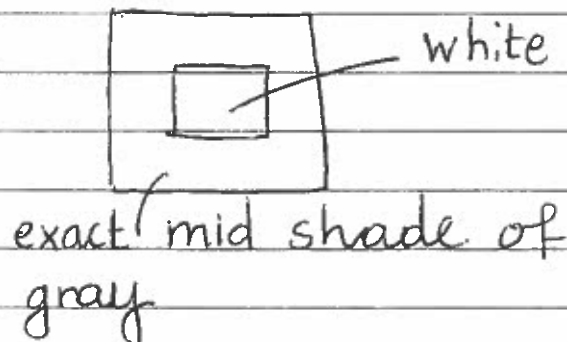 white
exact mid shade of
gray